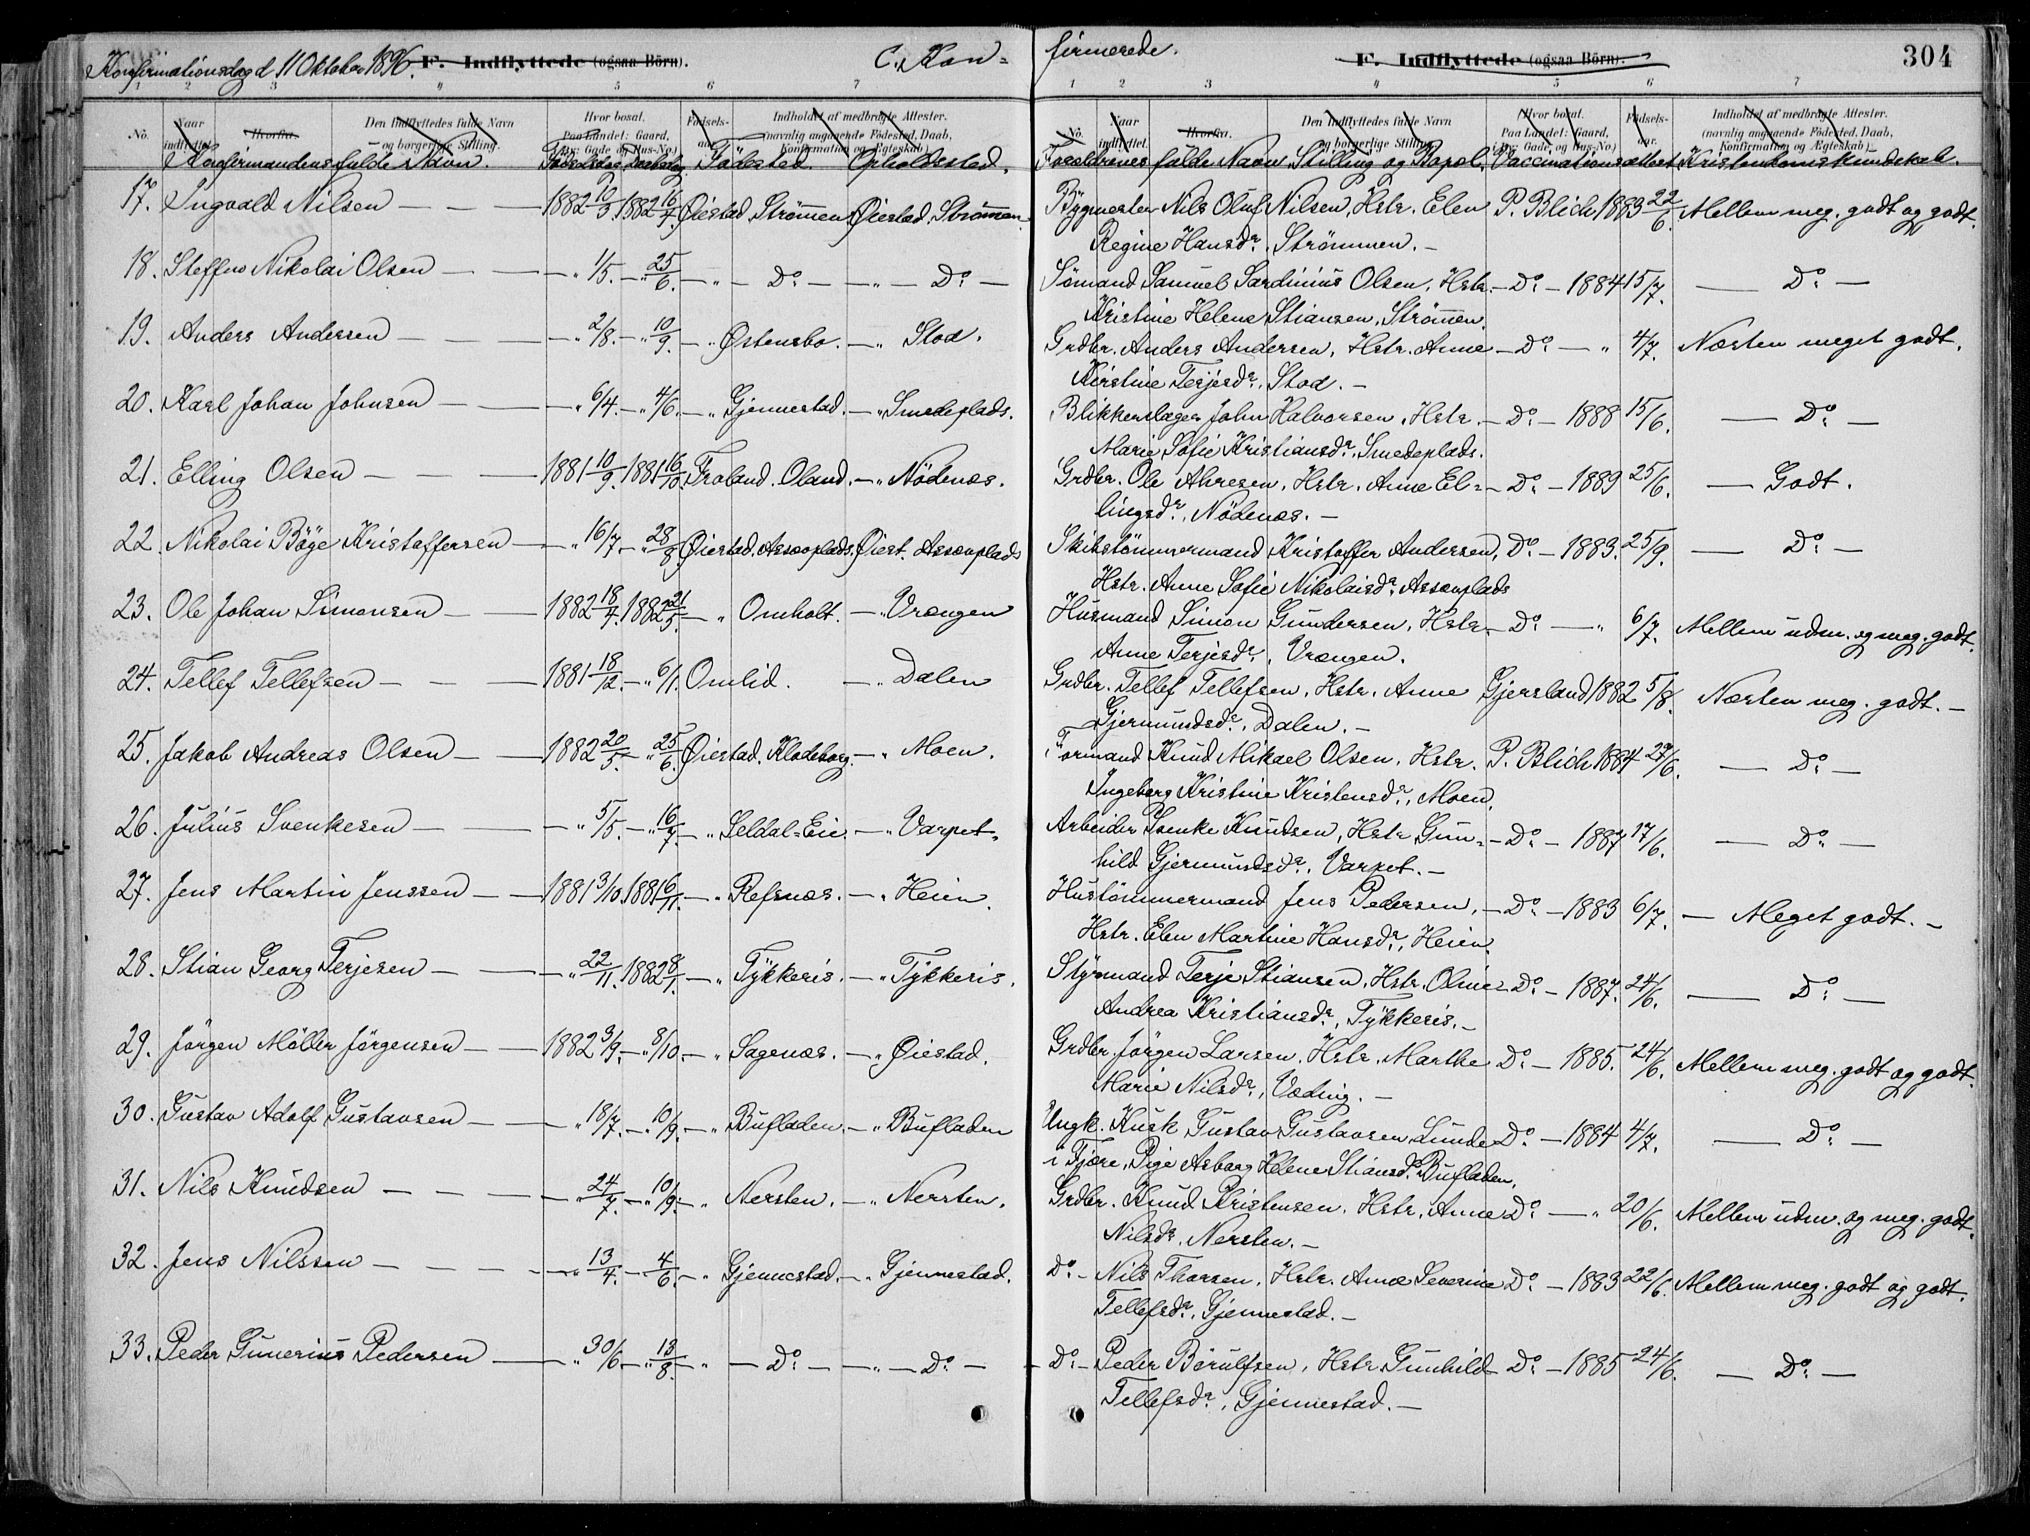 Konfirmationsdag d. 11 Oktober 1896. F. Indflyttede (ogsaa Börn). C. Kon-
firmerede. F. Indflyttede (ogsaa Börn). 304
1 2 3 4 5 6 7
1 2 3 4 5 6 7
No. Naar indflyttet. Hvorfra. Den Indflyttedes fulde Navn og borgerlige Stilling. Hvor bosat. Paa Landet: Gaard, (By: Gade og Hus-No.) Födsels-aar. Indholdet af medbragte Attester. (navnlig angaaende Födested, Daab, Konfirmation og Ægteskab)
No. Naar indflyttet. Hvorfra. Den Indflyttedes fulde Navn og borgerlige Stilling. Hvor bosat. Paa Landet: Gaard, (By: Gade og Hus-No) Födsels-aar. Indholdet af medbragte Attester. (navnlig angaaende Födested, Daab, Konfirmation og Ægteskab)
Konfirmandens fulde Navn. Fødselsdag. Daabsdag. Fødested. Opholdssted.
Forældrenes fulde Navn, Stilling og Bopæl. Vaccinationsattest. Kristendomskundskab.
17. Ingvald Nilsen — 1882 10/3. 1882 16/4. Øiestad. Strømmen. Øiestad. Strömmen.
Bygmester Nils Oluf Nilsen, Hstr. Elen P. Blich 1883 22/6. Mellem meg. godt og godt.
Regine Hansdr., Strømmen. —
18. Steffen Nikolai Olsen — " 1/5. — " 25/6. — " — Do. — " — Do. —
Sømand Samuel Sardinius Olsen, Hstr. — Do. — 1884 15/7. — Do. —
Kristine Helene Stiansen, Strömmen.
19. Anders Andersen — " 2/8. — " 10/9. — " Østensbo. — " Stod.
Grdbr. Anders Andersen, Hstr. Anne — Do. — " 4/7. Næsten meget godt.
Kirstine Terjesdr., Stod. —
20. Karl Johan Johnsen — " 6/4. — " 4/6. — " Gjennestad. — " Smedeplads.
Blikkenslager John Halvorsen, Hstr. — Do. — 1888 15/6. — Do. —
Marie Sofie Kristiansdr., Smedeplads.
21. Elling Olsen — 1881 10/9. 1881 16/10. Froland. Oland. — " Nödenæs.
Grdbr. Ole Ahresen, Hstr. Anne El- — Do. — 1889 25/6. — Godt.
lingsdr., Nödenæs. —
22. Nikolai Böge Kristoffersen — " 16/7. — " 28/8. Øiestad. Assævplads. Øiest. Assævplads
Skibstömmermand Kristoffer Andersen, Do. — 1883. 25/9. — Do. —
Hstr. Anne Sofie Nikolaisdr. Assævplads
23. Ole Johan Simonsen — 1882 18/4. 1882 21/5. — " Omholt. — " Vrængen
Husmand Simon Gundersen, Hstr. — Do. — " 6/7. Mellem udm. og meg. godt.
Anne Terjesdr., Vrængen.
24. Tellef Tellefsen — 1881 18/12. — " 6/1. Omlid. — " Dalen
Grdbr. Tellef Tellefsen, Hstr. Anne Gjersland 1882 5/8. Næsten meg. godt. —
Gjermundsdr., Dalen. —
25. Jakob Andreas Olsen — 1882 20/5. — " 25/6. Øiestad. Klodeborg. — " Moen.
Formand Knud Mikael Olsen, Hstr. P. Blich 1884 27/6. — Do. —
Ingeborg Kristine Kristensdr., Moen.
26. Julius Svenkesen — " 5/5. — " 16/7. — " Seldal-Eie. — " Varpet.
Arbeider Svenke Knudsen, Hstr Gun- — Do. — 1887 17/6. — Do. —
hild Gjermundsdr., Varpet. —
27. Jens Martin Jenssen — 1881 3/10. 1881 6/11. — " Refsnæs. — " Heien.
Hustömmermand Jens Pedersen, — Do. — 1883 6/7. — Meget godt. —
Hstr. Elen Martine Hansdr., Heien.
28. Stian Georg Terjesen — " 22/11. 1882 8/1. — " Tykkeris. — " Tykkeris.
Styrmand Terje Stiansen, Hstr. Oline Do. — 1887. 24/6. — Do. —
Andrea Kristiansdr., Tykkeris. —
29. Jørgen Møller Jørgensen — 1882 3/9. — " 8/10. — " Sagenæs. — " Øiestad.
Grdbr. Jørgen Larsen, Hstr. Marthe Do. — 1885. 24/6. Mellem meg. godt og godt.
Marie Nilsdr., Væding. —
30. Gustav Adolf Gustavsen — " 18/7. — " 10/9. — " Bufladen. — " Bufladen
Ungk. Husk Gustav Gustavsen Lunde Do. — 1884 4/7. — Do. —
i Fjære, Pige Asborg Helene Stiansdr. Bufladen.
31. Nils Knudsen — " 24/7. — " 10/9. — " Nersten. — " Nersten.
Grdbr. Knud Kristensen, Hstr. Anne Do. — " 20/6. Mellem udm. og meg. godt.
Nilsdr., Nersten. —
32. Jens Nilssen — " 13/4. — " 4/6. — " Gjennestad. — " Gjennestad.
Do. — Nils Thorsen, Hstr. Anne Severine Do. — 1883 22/6. Mellem meg. godt og godt.
Tellefsdr., Gjennestad. —
33. Peder Gunerius Pedersen — " 30/6. — " 13/8. — " — Do. — " — Do. —
Do. — Peder Börulfsen, Hstr. Gunhild Do. — 1885 24/6. — Do. —
Tellefsdr., Gjennestad. —